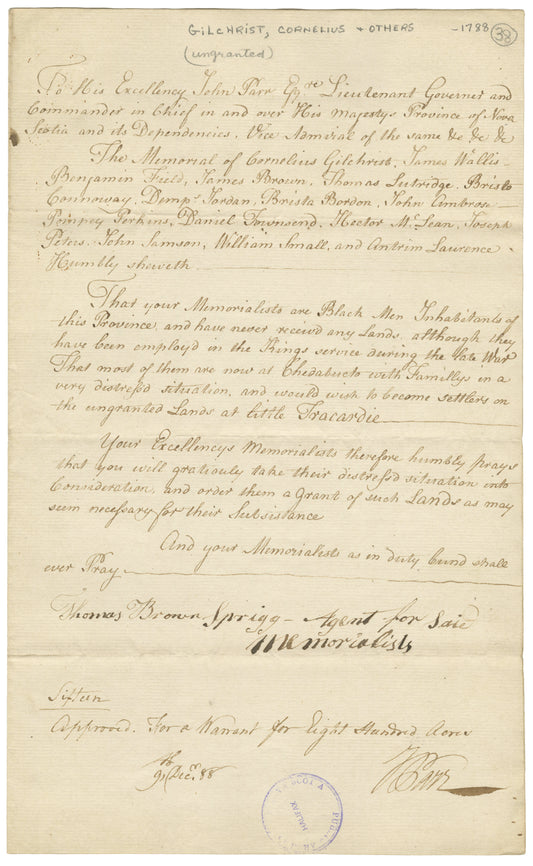 GILCHRIST, CORNELIUS + OTHERS -1788 (38)
(ungranted)
To His Excellency John Parr Esqre Lieutenant Governer and
Commander in Chief in and over His Majestys Province of Nova
Scotia and its Dependencies, Vice Admiral of the same &c &c &c
The Memorial of Cornelius Gilchrist, James Wallis
Benjamin Field, James Brown, Thomas Lutridge, Bristo
Connoway, Dempy Jordan, Brista Bordon, John Ambrose
Pompey Perkins, Daniel Townsend, Hector Mc Lean, Joseph
Peters, John Samson, William Small, and Antrim Laurence
Humbly sheweth
That your Memorialists are Black Men Inhabitants of
this Province, and have never receivd any Lands, although they
have been employd in the Kings service during the late War
That most of them are now at Chedabucto with Famillys in a
very distress'd situation, and would wish to become settlers on
the ungranted Lands at little Tracardie
Your Excellencys Memorialists therefore humbly prays
that you will gratiouly take their distress'd situation into
Consideration, and order them a grant of such Lands as may
seem necessary for their Subsistance
And your Memorialists as in duty bund shall
ever Pray
Thomas Brown Sprigg - Agent for Said
Memorialists
Sifteen
Approved. For a Warrant for Eight Hundred Acres
9th Decr. 88
JParr
SCOTIA
HALIFAX
PUBLIC